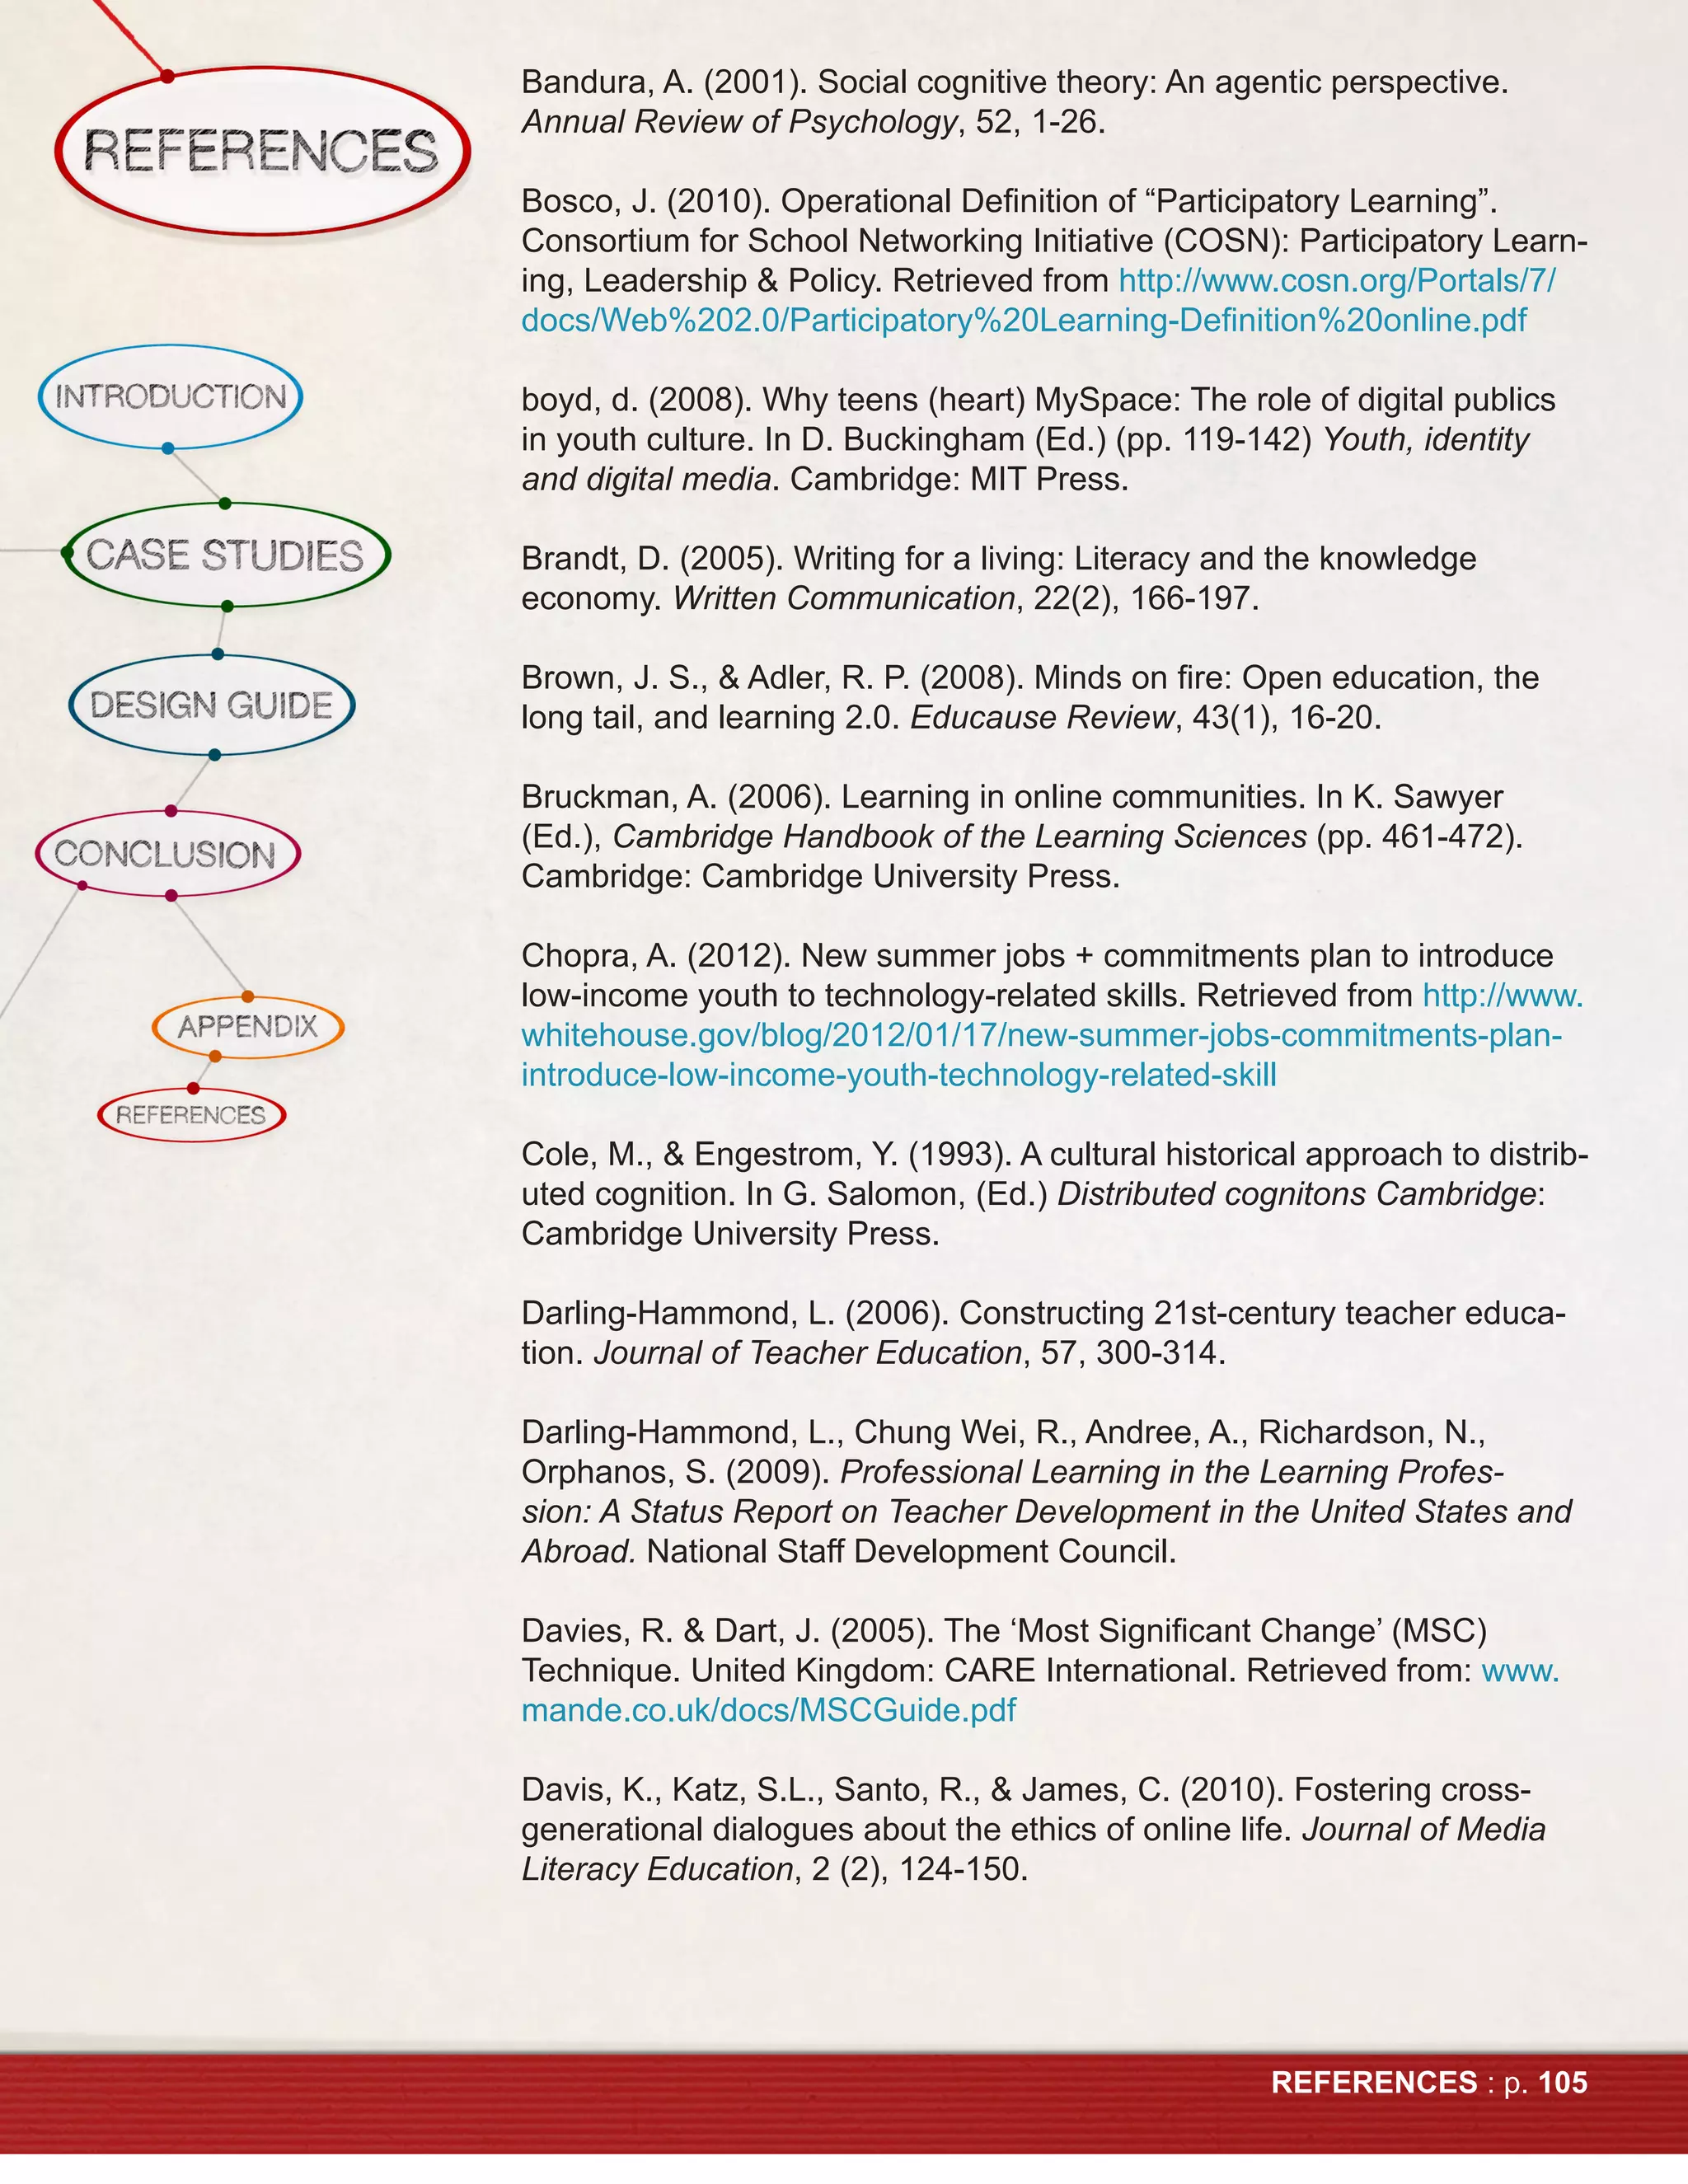 REFERENCES
INTRODUCTION
CASE STUDIES
DESIGN GUIDE
CONCLUSION
APPENDIX
REFERENCES
Bandura, A. (2001). Social cognitive theory: An agentic perspective.
Annual Review of Psychology, 52, 1-26.
Bosco, J. (2010). Operational Definition of “Participatory Learning”.
Consortium for School Networking Initiative (COSN): Participatory Learn-
ing, Leadership & Policy. Retrieved from http://www.cosn.org/Portals/7/
docs/Web%202.0/Participatory%20Learning-Definition%20online.pdf
boyd, d. (2008). Why teens (heart) MySpace: The role of digital publics
in youth culture. In D. Buckingham (Ed.) (pp. 119-142) Youth, identity
and digital media. Cambridge: MIT Press.
Brandt, D. (2005). Writing for a living: Literacy and the knowledge
economy. Written Communication, 22(2), 166-197.
Brown, J. S., & Adler, R. P. (2008). Minds on fire: Open education, the
long tail, and learning 2.0. Educause Review, 43(1), 16-20.
Bruckman, A. (2006). Learning in online communities. In K. Sawyer
(Ed.), Cambridge Handbook of the Learning Sciences (pp. 461-472).
Cambridge: Cambridge University Press.
Chopra, A. (2012). New summer jobs + commitments plan to introduce
low-income youth to technology-related skills. Retrieved from http://www.
whitehouse.gov/blog/2012/01/17/new-summer-jobs-commitments-plan-
introduce-low-income-youth-technology-related-skill
Cole, M., & Engestrom, Y. (1993). A cultural historical approach to distrib-
uted cognition. In G. Salomon, (Ed.) Distributed cognitons Cambridge:
Cambridge University Press.
Darling-Hammond, L. (2006). Constructing 21st-century teacher educa-
tion. Journal of Teacher Education, 57, 300-314.
Darling-Hammond, L., Chung Wei, R., Andree, A., Richardson, N.,
Orphanos, S. (2009). Professional Learning in the Learning Profes-
sion: A Status Report on Teacher Development in the United States and
Abroad. National Staff Development Council.
Davies, R. & Dart, J. (2005). The ‘Most Significant Change’ (MSC)
Technique. United Kingdom: CARE International. Retrieved from: www.
mande.co.uk/docs/MSCGuide.pdf
Davis, K., Katz, S.L., Santo, R., & James, C. (2010). Fostering cross-
generational dialogues about the ethics of online life. Journal of Media
Literacy Education, 2 (2), 124-150.
REFERENCES : p. 105